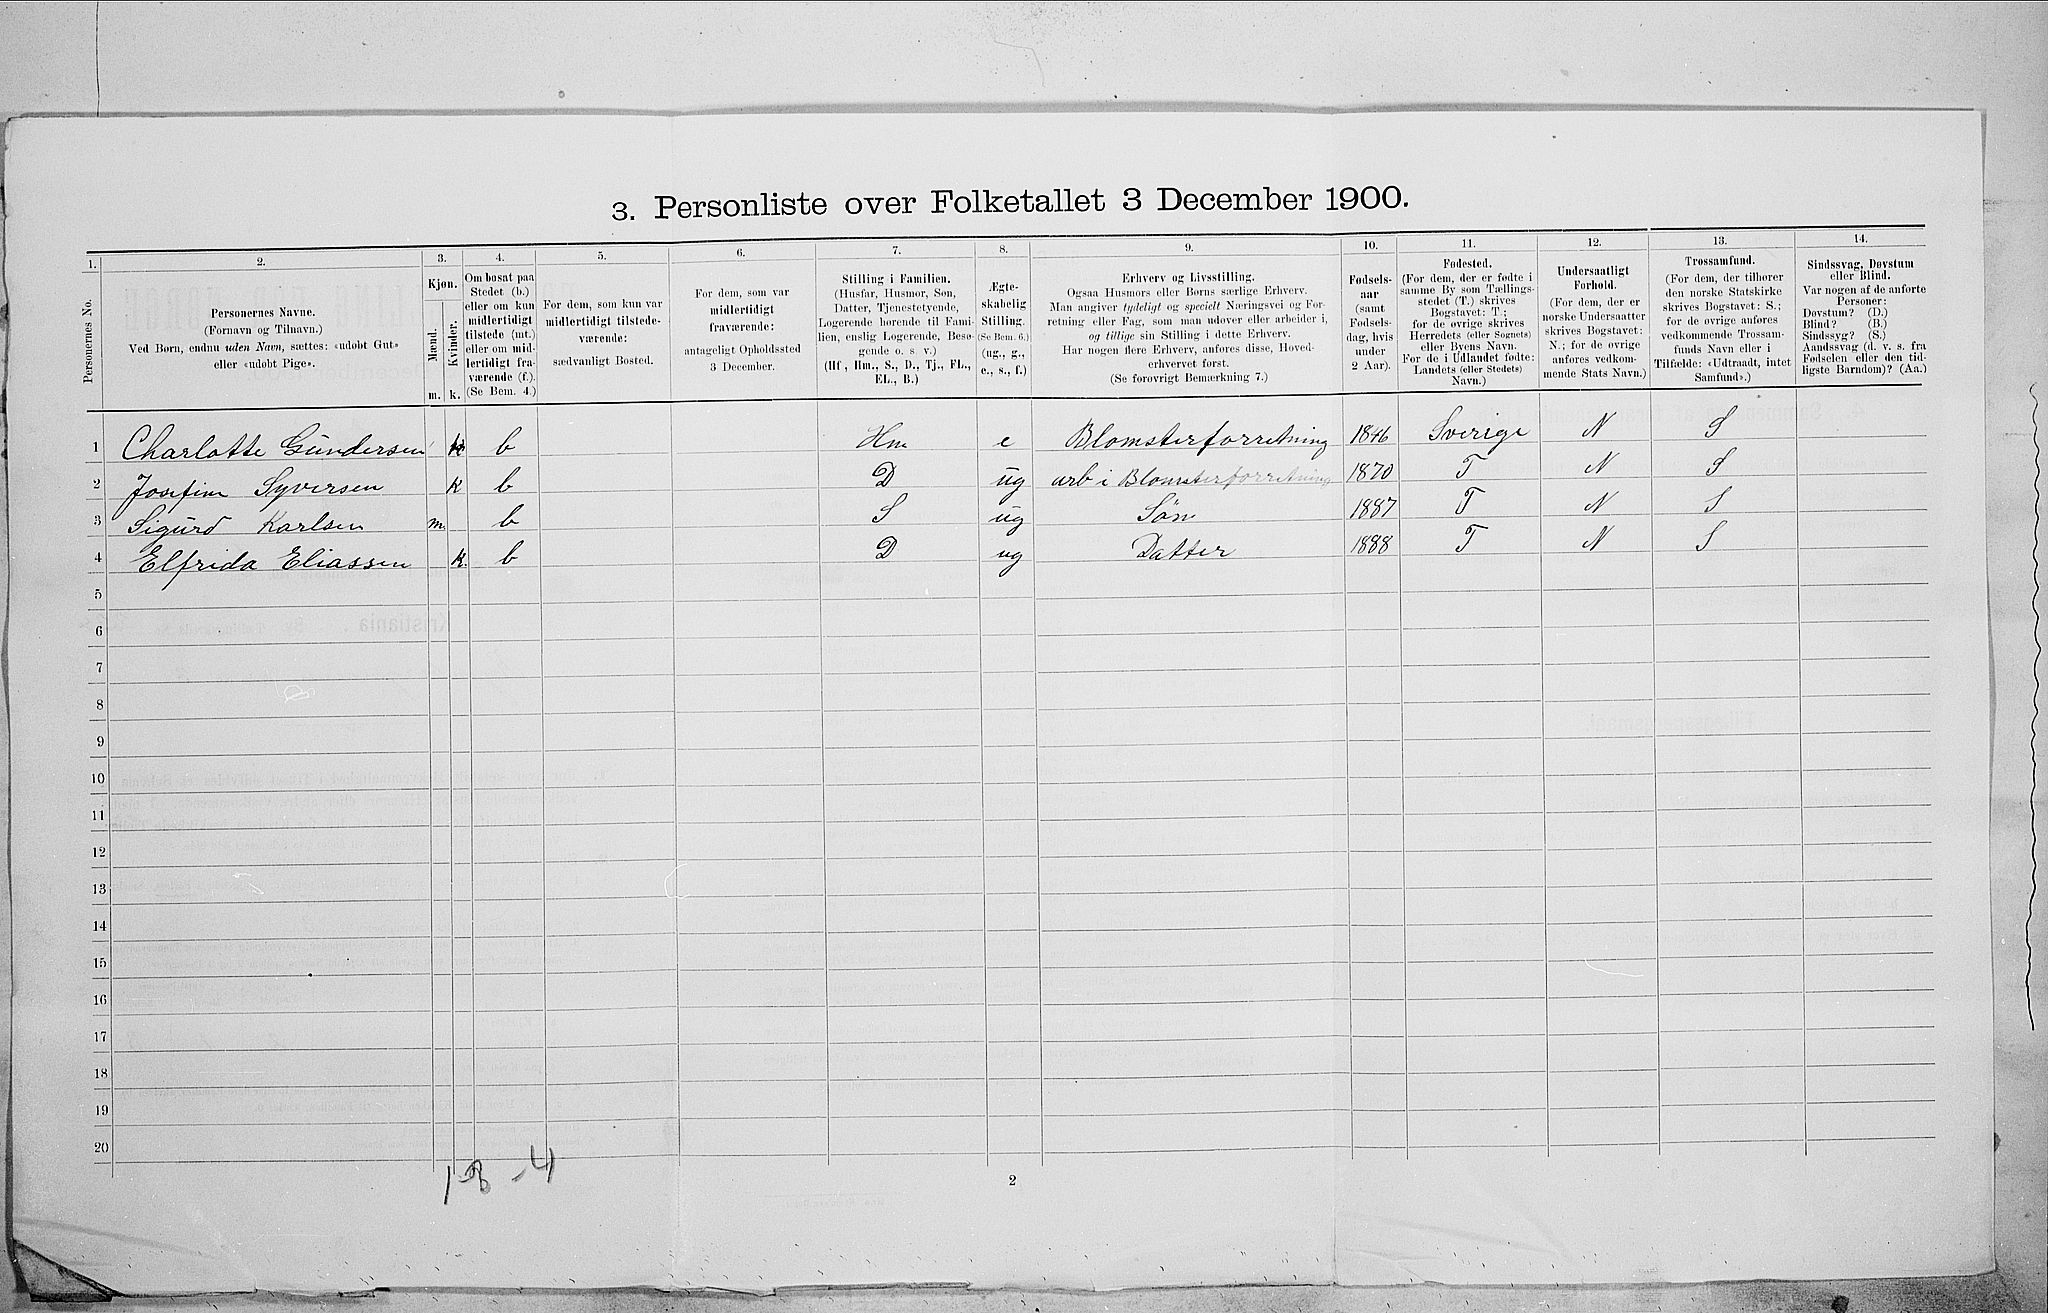 3. Personliste over Folketallet 3 December 1900.
1. 2. 3. 4. 5. 6. 7. 8. 9. 10. 11. 12. 13. 14.
Personernes No.
Personernes Navne.
(Fornavn og Tilnavn.)
Ved Børn, endnu uden Navn, sættes: «udøbt Gut»
eller «udøbt Pige».
Kjøn.
Mænd.
Kvinder.
m. k.
Om bosat paa
Stedet (b.)
eller om kun
midlertidigt
tilstede (mt.)
eller om mid-
lertidigt fra-
værende (f.)
(Se Bem. 4.)
For dem, som kun var
midlertidigt tilstede-
værende:
sædvanligt Bosted.
For dem, som var
midlertidigt
fraværende:
antageligt Opholdssted
3 December.
Stilling i Familien.
(Husfar, Husmor, Søn,
Datter, Tjenestetyende,
Logerende hørende til Fami-
lien, enslig Logerende, Besø-
gende o. s. v.)
(Hf., Hm., S., D., Tj., FL.,
EL., B.)
Ægte-
skabelig
Stilling.
(Se Bem. 6.)
(ug., g.,
e., s., f.)
Erhverv og Livsstilling.
Ogsaa Husmors eller Børns særlige Erhverv.
Man angiver tydeligt og specielt Næringsvei og For-
retning eller Fag, som man udøver eller arbeider i,
og tillige sin Stilling i dette Erhverv.
Har nogen flere Erhverv, anføres disse, Hoved-
erhvervet først.
(Se forøvrigt Bemærkning 7.)
Fødsels-
aar
(samt
Fødsels-
dag, hvis
under
2 Aar).
Fødested.
(For dem, der er fødte i
samme By som Tællings-
stedet (T.) skrives
Bogstavet: T.;
for de øvrige skrives
Herredets (eller Sognets)
eller Byens Navn.
For de i Udlandet fødte:
Landets (eller Stedets)
Navn.)
Undersaatligt
Forhold.
(For dem, der er
norske Undersaatter
skrives Bogstavet:
N.; for de øvrige
anføres vedkom-
mende Stats Navn.)
Trossamfund.
(For dem, der tilhører
den norske Statskirke
skrives Bogstavet: S.;
for de øvrige anføres
vedkommende Trossam-
funds Navn eller i
Tilfælde: «Udtraadt, intet
Samfund».)
Sindssvag, Døvstum
eller Blind.
Var nogen af de anførte
Personer:
Døvstum? (D.)
Blind? (B.)
Sindssyg? (S.)
Aandssvag (d. v. s. fra
Fødselen eller den tid-
ligste Barndom)? (Aa.)
1 Charlotte Gundersen k b Hm e Blomsterforretning 1846 Sverige N S
2 Josefine Syversen k b D ug arb i Blomsterforretning 1870 T N S
3 Sigurd Karlsen m b S ug Søn 1887 T N S
4 Elfrida Eliassen k. b D ug Datter 1888 T N S
5
6
7
8
9
10
11
12
13
14
15
16
17
18
19
20
1-3-4
2